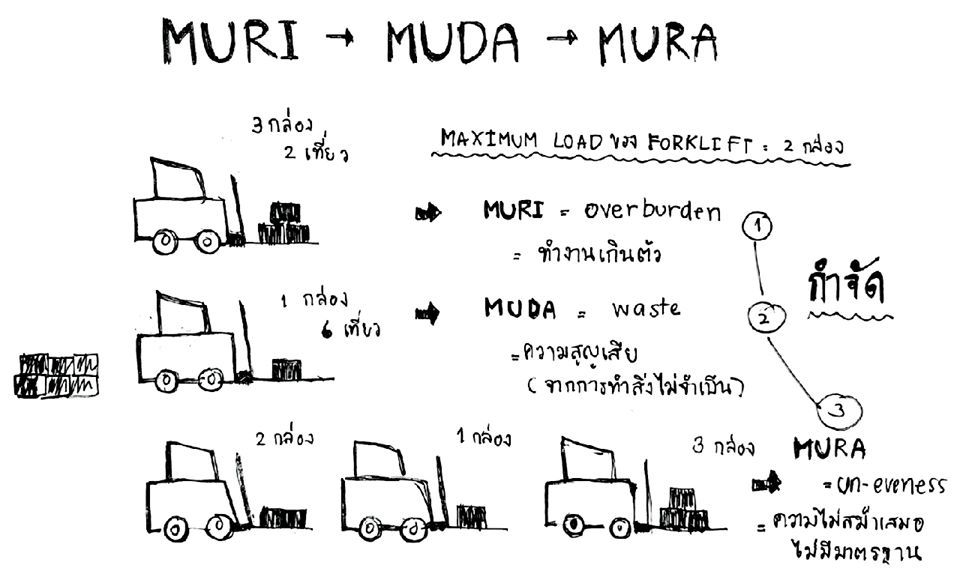 MURI → MUDA → MURA
3 กล่อง
2 เที่ยว
MAXIMUM LOAD ของ FORKLIFT = 2 กล่อง
MURI = overburden
= ทำงานเกินตัว
1
กำจัด
1 กล่อง
6 เที่ยว
MUDA = waste
= ความสูญเสีย
(จากการทำสิ่งไม่จำเป็น)
2
3
2 กล่อง
1 กล่อง
3 กล่อง
MURA
= un-eveness
= ความไม่สม่ำเสมอ
ไม่มีมาตรฐาน